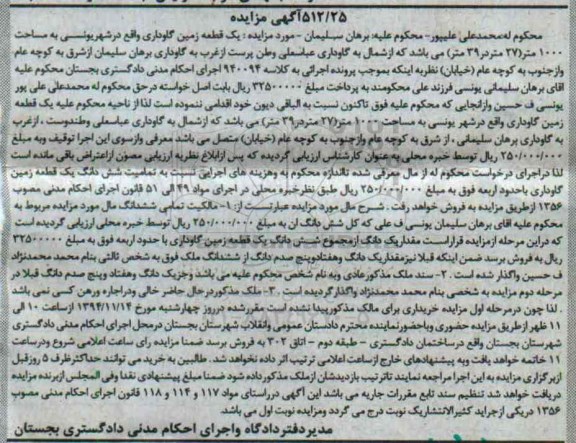 ۵۱۲/۲۵آگهی مزایده
محکوم له:محمدعلی علیپور- محکوم علیه: برهان سلیمان - مورد مزایده : یک قطعه زمین گاوداری واقع درشهریونسی به مساحت
۱۰۰۰ متر(۲۷ متردر۳۹ متر) می باشد که ازشمال به گاوداری عباسعلی وطن پرست ازغرب به گاوداری برهان سلیمان ازشرق به کوچه عام
وازجنوب به کوچه عام (خیابان) نظریه اینکه بموجب پرونده اجرائی به کلاسه ۹۴-۹۴۰۰ اجرای احکام مدنی دادگستری بجستان محکوم علیه
آقای برهان سلیمانی یونسی فرزند علی محکومند به پرداخت مبلغ ۳۲۵۰۰۰۰۰ ریال بابت اصل خواسته درحق محکوم له محمدعلی علی پور
یونسی ف حسین وازانجایی که محکوم علیه فوق تاکنون نسبت به الباقی دیون خود اقدامی ننموده است لذا از ناحیه محکوم علیه یک قطعه
زمین گاوداری واقع درشهر یونسی به مساحت ۱۰۰۰ متر(۲۷متردر۳۹ متر) می باشد که ازشمال به گاوداری عباسعلی وطندوست ، ازغرب
به گاوداری برهان سلیمانی ، از شرق به کوچه عام وازجنوب به کوچه عام (خیابان) متصل می باشد معرفی وازسوی این اجرا توقیف وبه مبلغ
۲۵۰/۰۰۰/۰۰۰ ریال توسط خبره محلی به عنوان کارشناس ارزیابی گردیده که پس ازابلاغ نظریه ارزیابی مصون ازاعتراض باقی مانده است
لذا دراجرای درخواست محکوم له از مال معرفی شده تااندازه محکوم به وهزینه های اجرایی نسبت به تمامیت شش دانگ یک قطعه زمین
گاوداری باحدود اربعه فوق به مبلغ ۲۵۰/۰۰۰/۰۰۰ ریال طبق نظرخبره محلی در اجرای مواد ۴۹ الی ۵۱ قانون اجرای احکام مدنی مصوب
۱۳۵۶ ازطریق مزایده به فروش خواهد رفت . شرح مال مورد مزایده عبارتست از : ۱- مالکیت تمامی ششدانگ مال مورد مزایده مربوط به
محکوم علیه آقای برهان سلیمان یونسی ف علی که کل شش دانگ آن به مبلغ ۲۵۰/۰۰۰/۰۰۰ ریال توسط خبره محلی ارزیابی گردیده است
که دراین مرحله ازمزایده قراراست مقداریک دانگ ازمجموع شش دانگ یک قطعه زمین گاوداری با حدود اربعه فوق به مبلغ ۳۲۵۰۰۰۰۰
ریال به فروش برسد ضمن اینکه قبلا نیزمقداریک دانگ وهفتادوپنج صدم دانگ از ششدانگ ملک فوق به شخص ثالثی بنام محمد محمدنژاد
ف حسین واگذار شده است . ۲- سند ملک مذکورعادی وبه نام شخص محکوم علیه می باشد وجزیک دانگ وهفتاد وپنج صدم دانگ قبلا در
مرحله دوم مزایده به شخصی بنام محمد محمدنژاد واگذارگردیده است . ۳- ملک مذکوردرحال حاضر خالی ودراجاره ورهن کسی نمی باشد
. لذا چون درمرحله اول مزایده خریداری برای مالک مذکورپیدا نشده است مقررشده درروز چهارشنبه مورخ ۱۳۹۴/۱۱/۱۴ ازساعت ۱۰ الی
۱۱ ظهر ازطریق مزایده حضوری وباحضورنماینده محترم دادستان عمومی وانقلاب شهرستان بجستان درمحل اجرای احکام مدنی دادگستری
شهرستان بجستان واقع درساختمان دادگستری – طبقه دوم – اتاق ۳۰۲ به فروش برسد ضمنا مزایده رای ساعت اعلامی شروع ودرساعت
۱۱ خاتمه خواهد یافت وبه پیشنهادهای خارج ازساعت اعلامی ترتیب اثر داده نخواهد شد . طالبین به خرید می توانند حداکثرظرف ۵ روزقبل
ازبرگزاری مزایده به این اجرا مراجعه نمایند تاترتیب بازدیدشان ازملک مذکورداده شود ضمنا مبلغ پیشنهادی نقدا وفی المجلس ازبرنده مزایده
دریافت خواهد شد تنظیم سند تابع مقررات جاریه می باشد این آگهی درراستای مواد ۱۱۷ و ۱۱۴ و ۱۱۸ قانون اجرای احکام مدنی مصوب
۱۳۵۶ دریکی ازجراید کثیرالانتشاریک نوبت درج می گردد ومزایده نوبت اول می باشد
مدیردفتردادگاه واجرای احکام مدنی دادگستری بجستان